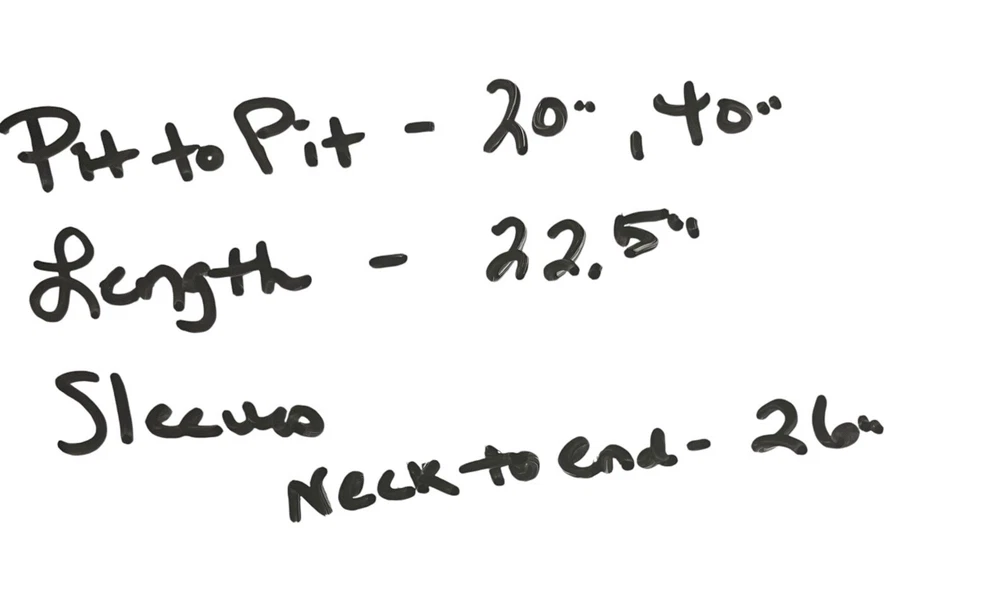 Pit to Pit - 20", 40"
Length - 22.5"
Sleeves
Neck to end - 26"